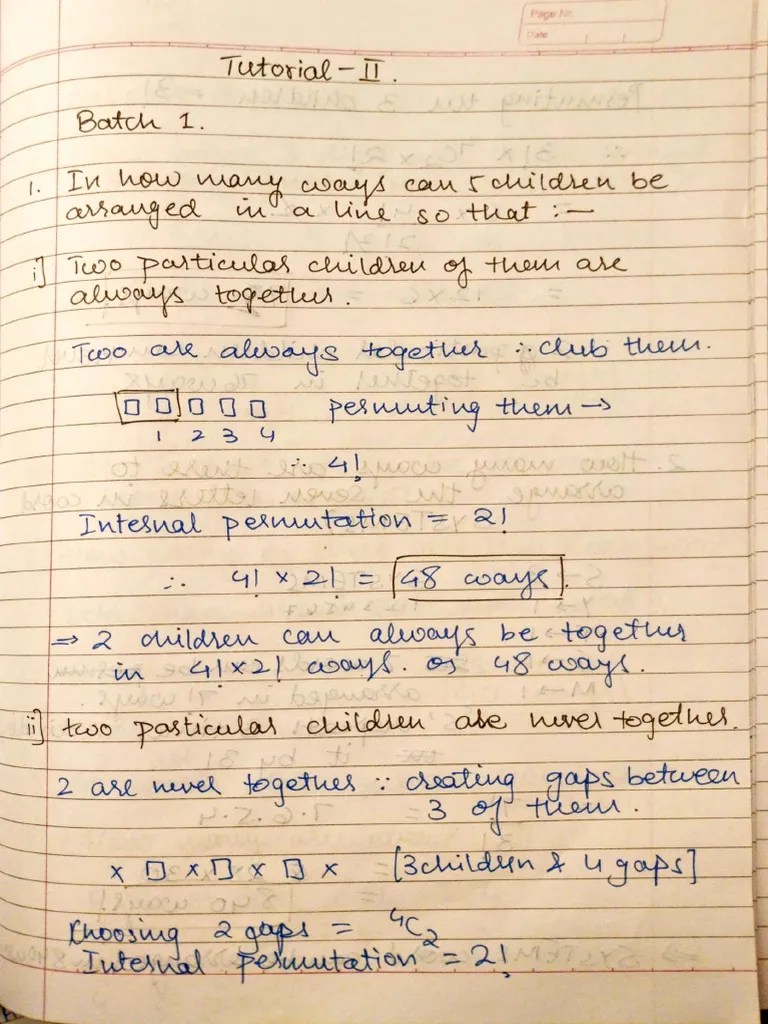 Page No.
Date
Tutorial - II.
Batch 1.
1. In how many ways can 5 children be
arranged in a line so that :—
i] Two particular children of them are
always together.
Two are always together ∴ club them.
□ □ □ □ □ permuting them →
1 2 3 4
∴ 4!
Internal permutation = 2!
∴ 4! × 2! = 48 ways.
⇒ 2 children can always be together
in 4! × 2! ways. or 48 ways.
ii] two particular children are never together.
2 are never together ∵ creating gaps between
3 of them.
× □ × □ × □ × [3 children & 4 gaps]
Choosing 2 gaps = ⁴C₂
Internal permutation = 2!